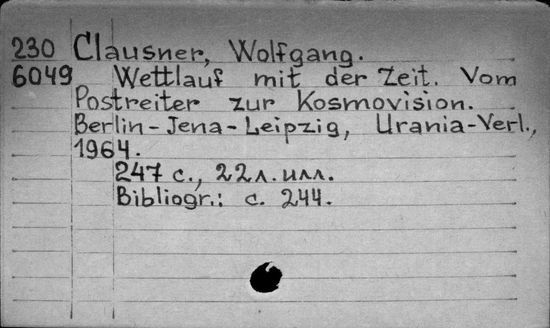 230 Clausner, Wolfgang.
6049 Wettlauf mit der Zeit. Vom
Postreiter zur Kosmovision.
Berlin-Jena-Leipzig, Urania-Verl.,
1964.
247 с., 22 л. илл.
Bibliogr.: с. 244.